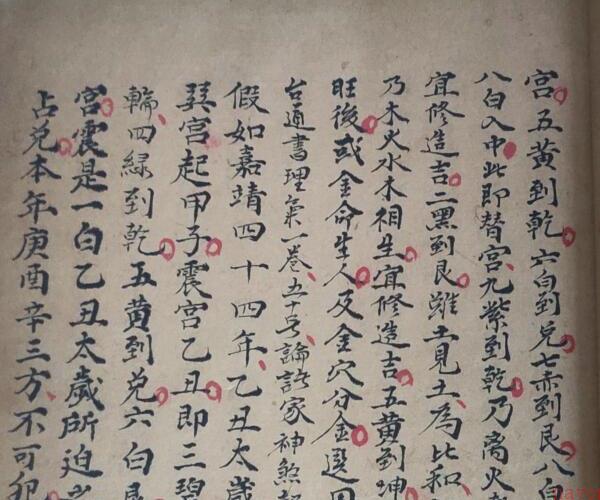 宮五黃到乾六白到兌七赤到艮八白
八白入中此即替宮九紫到乾乃离火
宜修造吉二黑到艮雖土見土為比和
乃木火水木相生宜修造吉五黃到坤
旺後或金命生人及金穴分金選用
台通書理氣一卷五十号論諸家神煞
假如嘉靖四十四年乙丑太歲
巽宮起甲子震宮乙丑即三碧
輪四緑到乾五黃到兌六白艮
宮震是一白乙丑太歲所迫
占兌本年庚酉辛三方不可